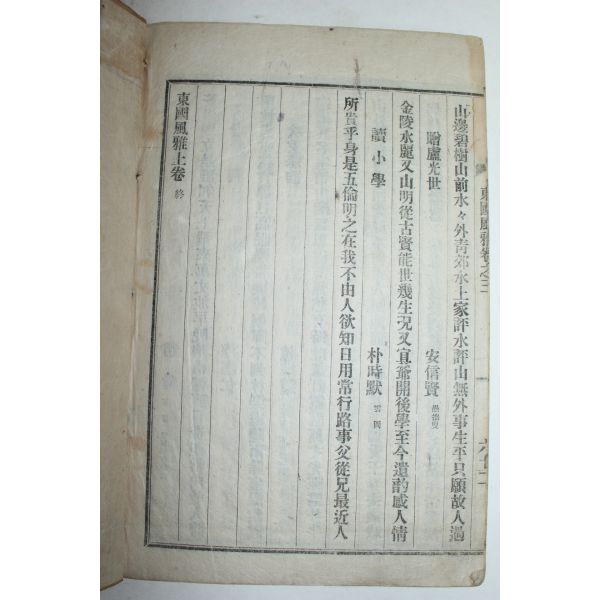 東國風雅卷之三
山邊碧樹山前水々外靑郊水上家評水評山無外事生平只願故人過
贈盧光世 安信賢
金陵水麗又山明從古賢能世幾生况又宜爺開後學至今遺韵感人情
讀小學 朴時默 雲岡
所貴乎身是五倫明之在我不由人欲知日用常行路事父從兄最近人
東國風雅上卷 終